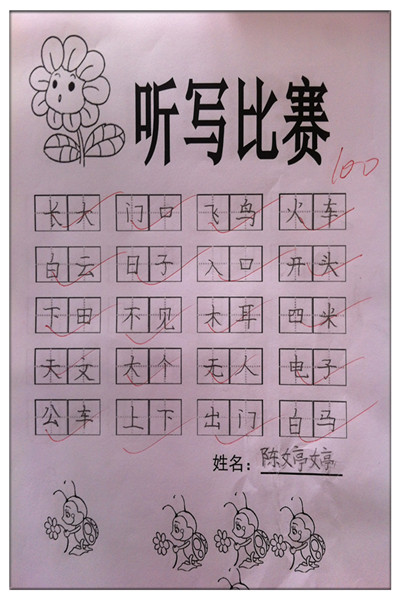 听写比赛
100
长大 门口 飞鸟 火车
白云 日子 入口 开头
下田 不见 木耳 四米
天文 大个 无人 电子
公车 上下 出门 白马
姓名：陈婷婷